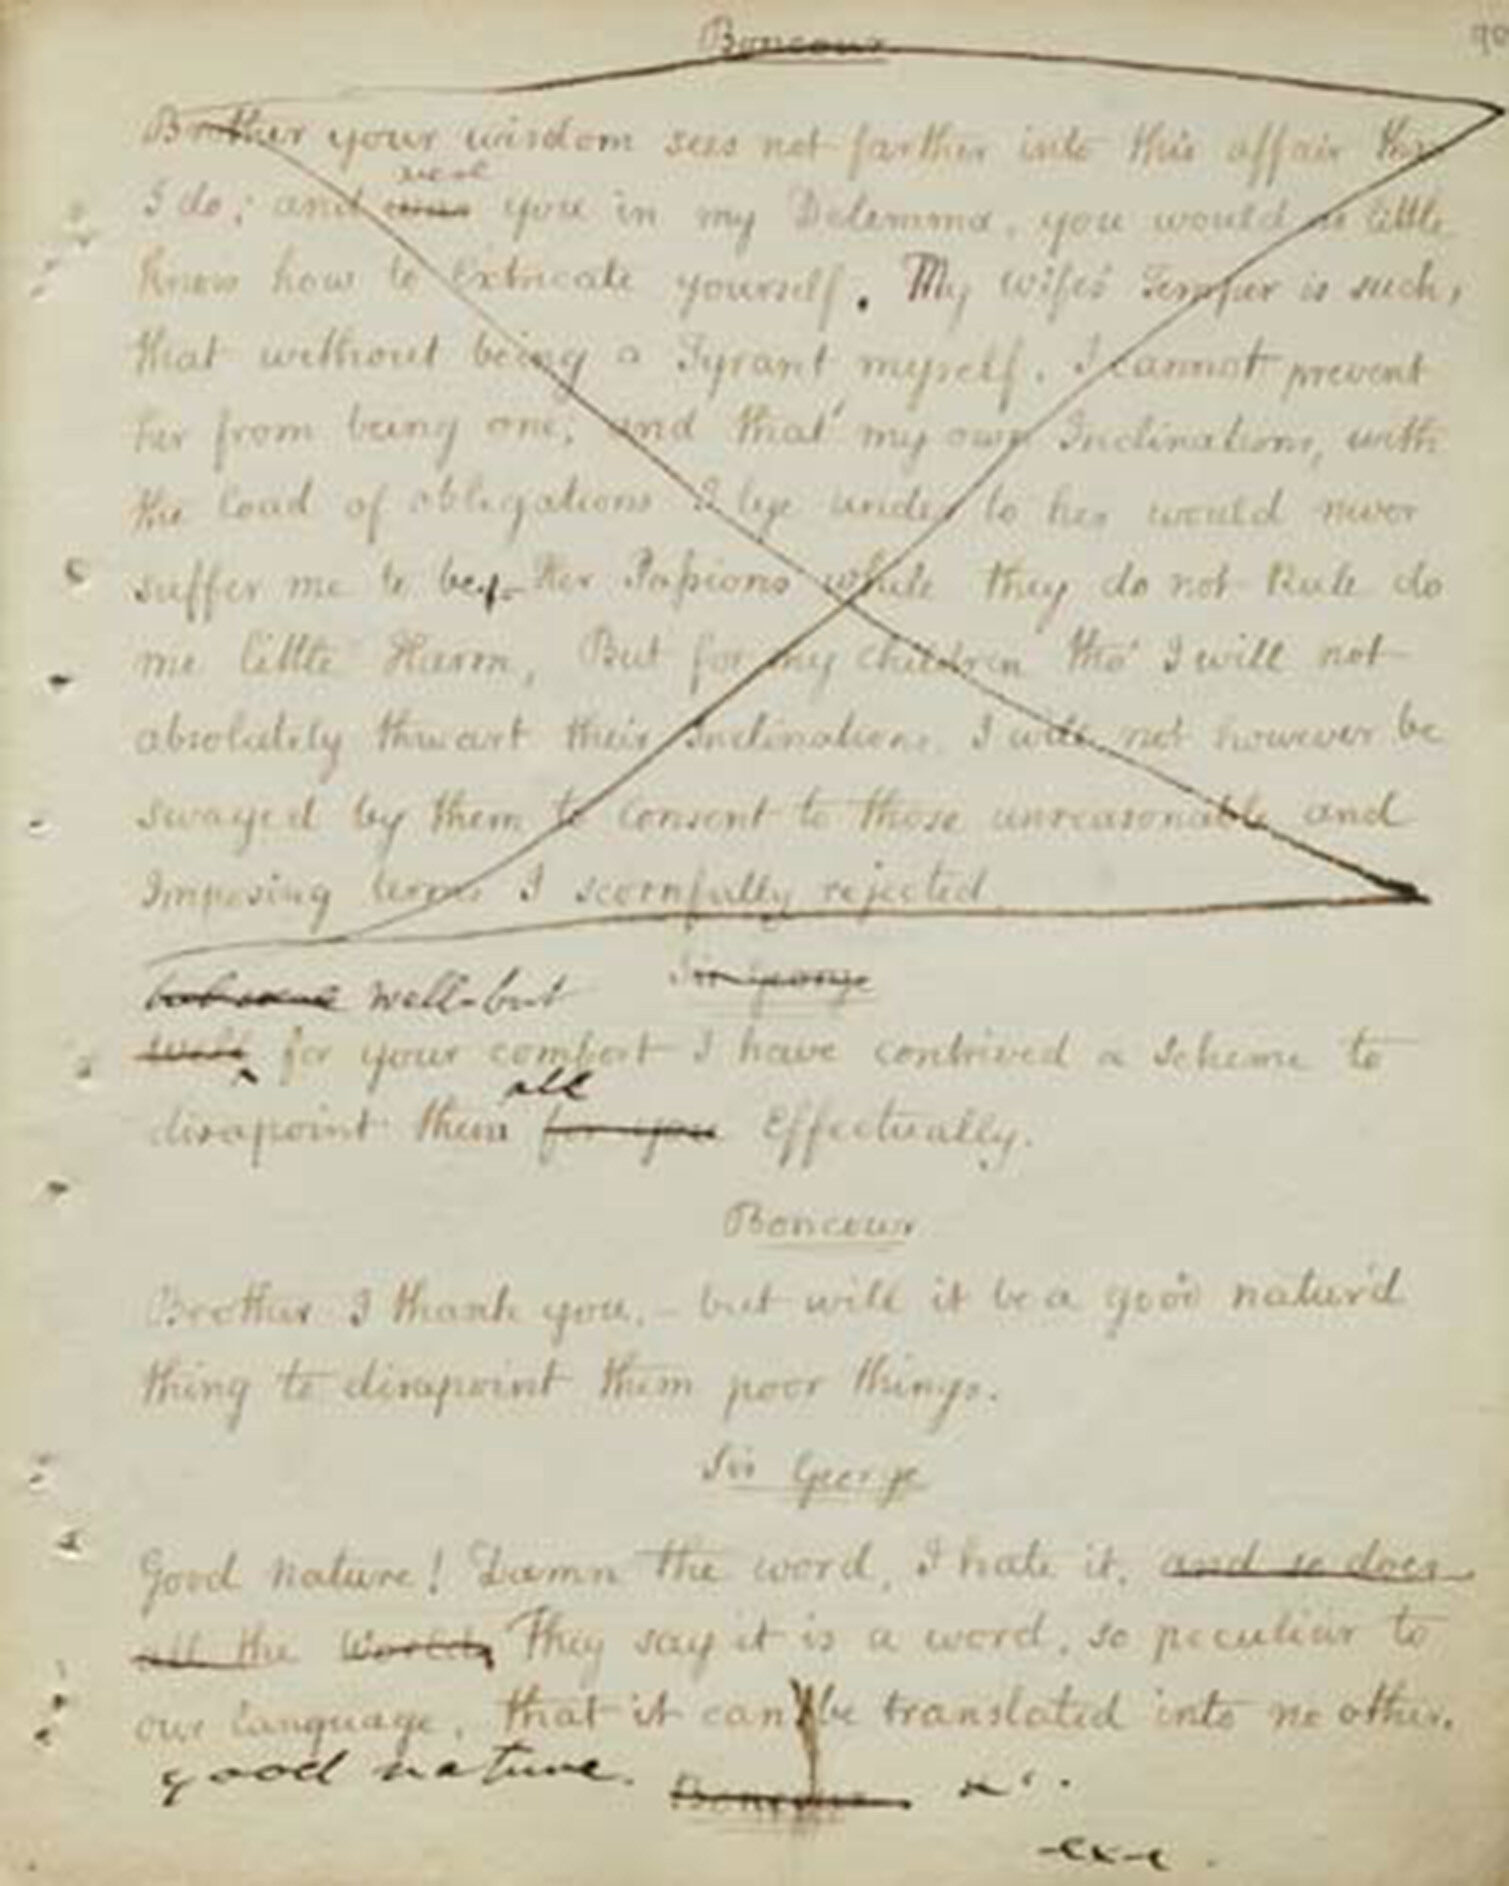 Boncour
90
Brother your wisdom sees not farther into this affair than
were
I do; and was you in my Delemma, you would as little
know how to Extricate yourself. My wifes' Temper is such,
that without being a Tyrant myself, I cannot prevent
her from being one; and that' my own Inclinations, with
the load of obligations I lye under to her would never
suffer me to be, Her Passions while they do not Rule do
me little Harm, But for my children tho' I will not
absolutely thwart their Inclinations, I will not however be
swayed by them to consent to those unreasonable and
Imposing terms I scornfully rejected.
Sir George
well-but
well for your comfort I have contrived a scheme to
all
disapoint them for you Effectually.
Boncour
Brother I thank you, - but will it be a good natur'd
thing to disapoint them poor things.
Sir George
Good nature! Damn the word, I hate it, and so does
all the World, They say it is a word, so peculiar to
our language, that it can be translated into no other.
good nature.
Boncour
exe.